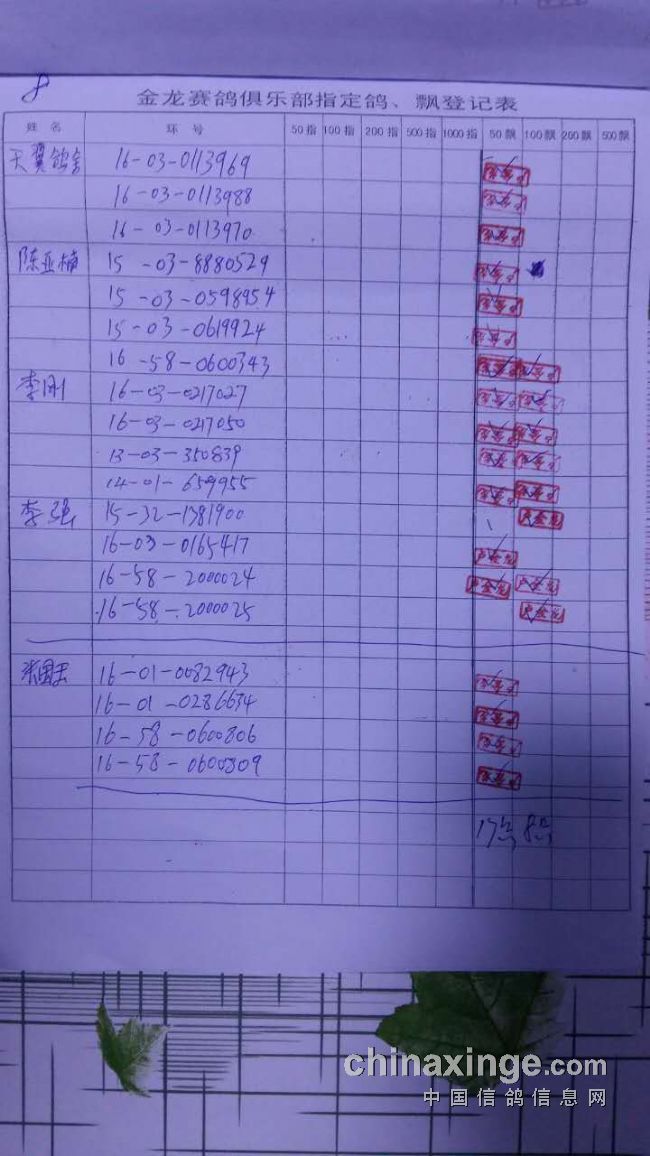 8
金龙赛鸽俱乐部指定鸽、飘登记表
姓 名 环 号 50指 100指 200指 500指 1000指 50飘 100飘 200飘 500飘
天翼鸽舍 16-03-0113969
16-03-0113988
16-03-0113970
陈亚楠 15-03-8880529
15-03-0598954
15-03-0619924
16-58-0600343
李刚 16-03-0217027
16-03-0217050
13-03-350839
14-01-659955
李强 15-32-1381900
16-03-0165417
16-58-2000024
16-58-2000025
16-01-0082943
16-01-0286634
16-58-0600806
16-58-0600809
17 8
chinaxinge.com
中国信鸽信息网